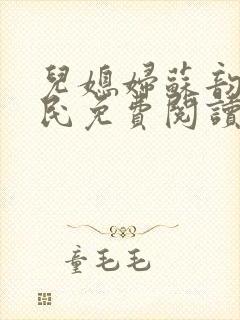 兒媳婦蘇韵
民免費閱讀
童毛毛